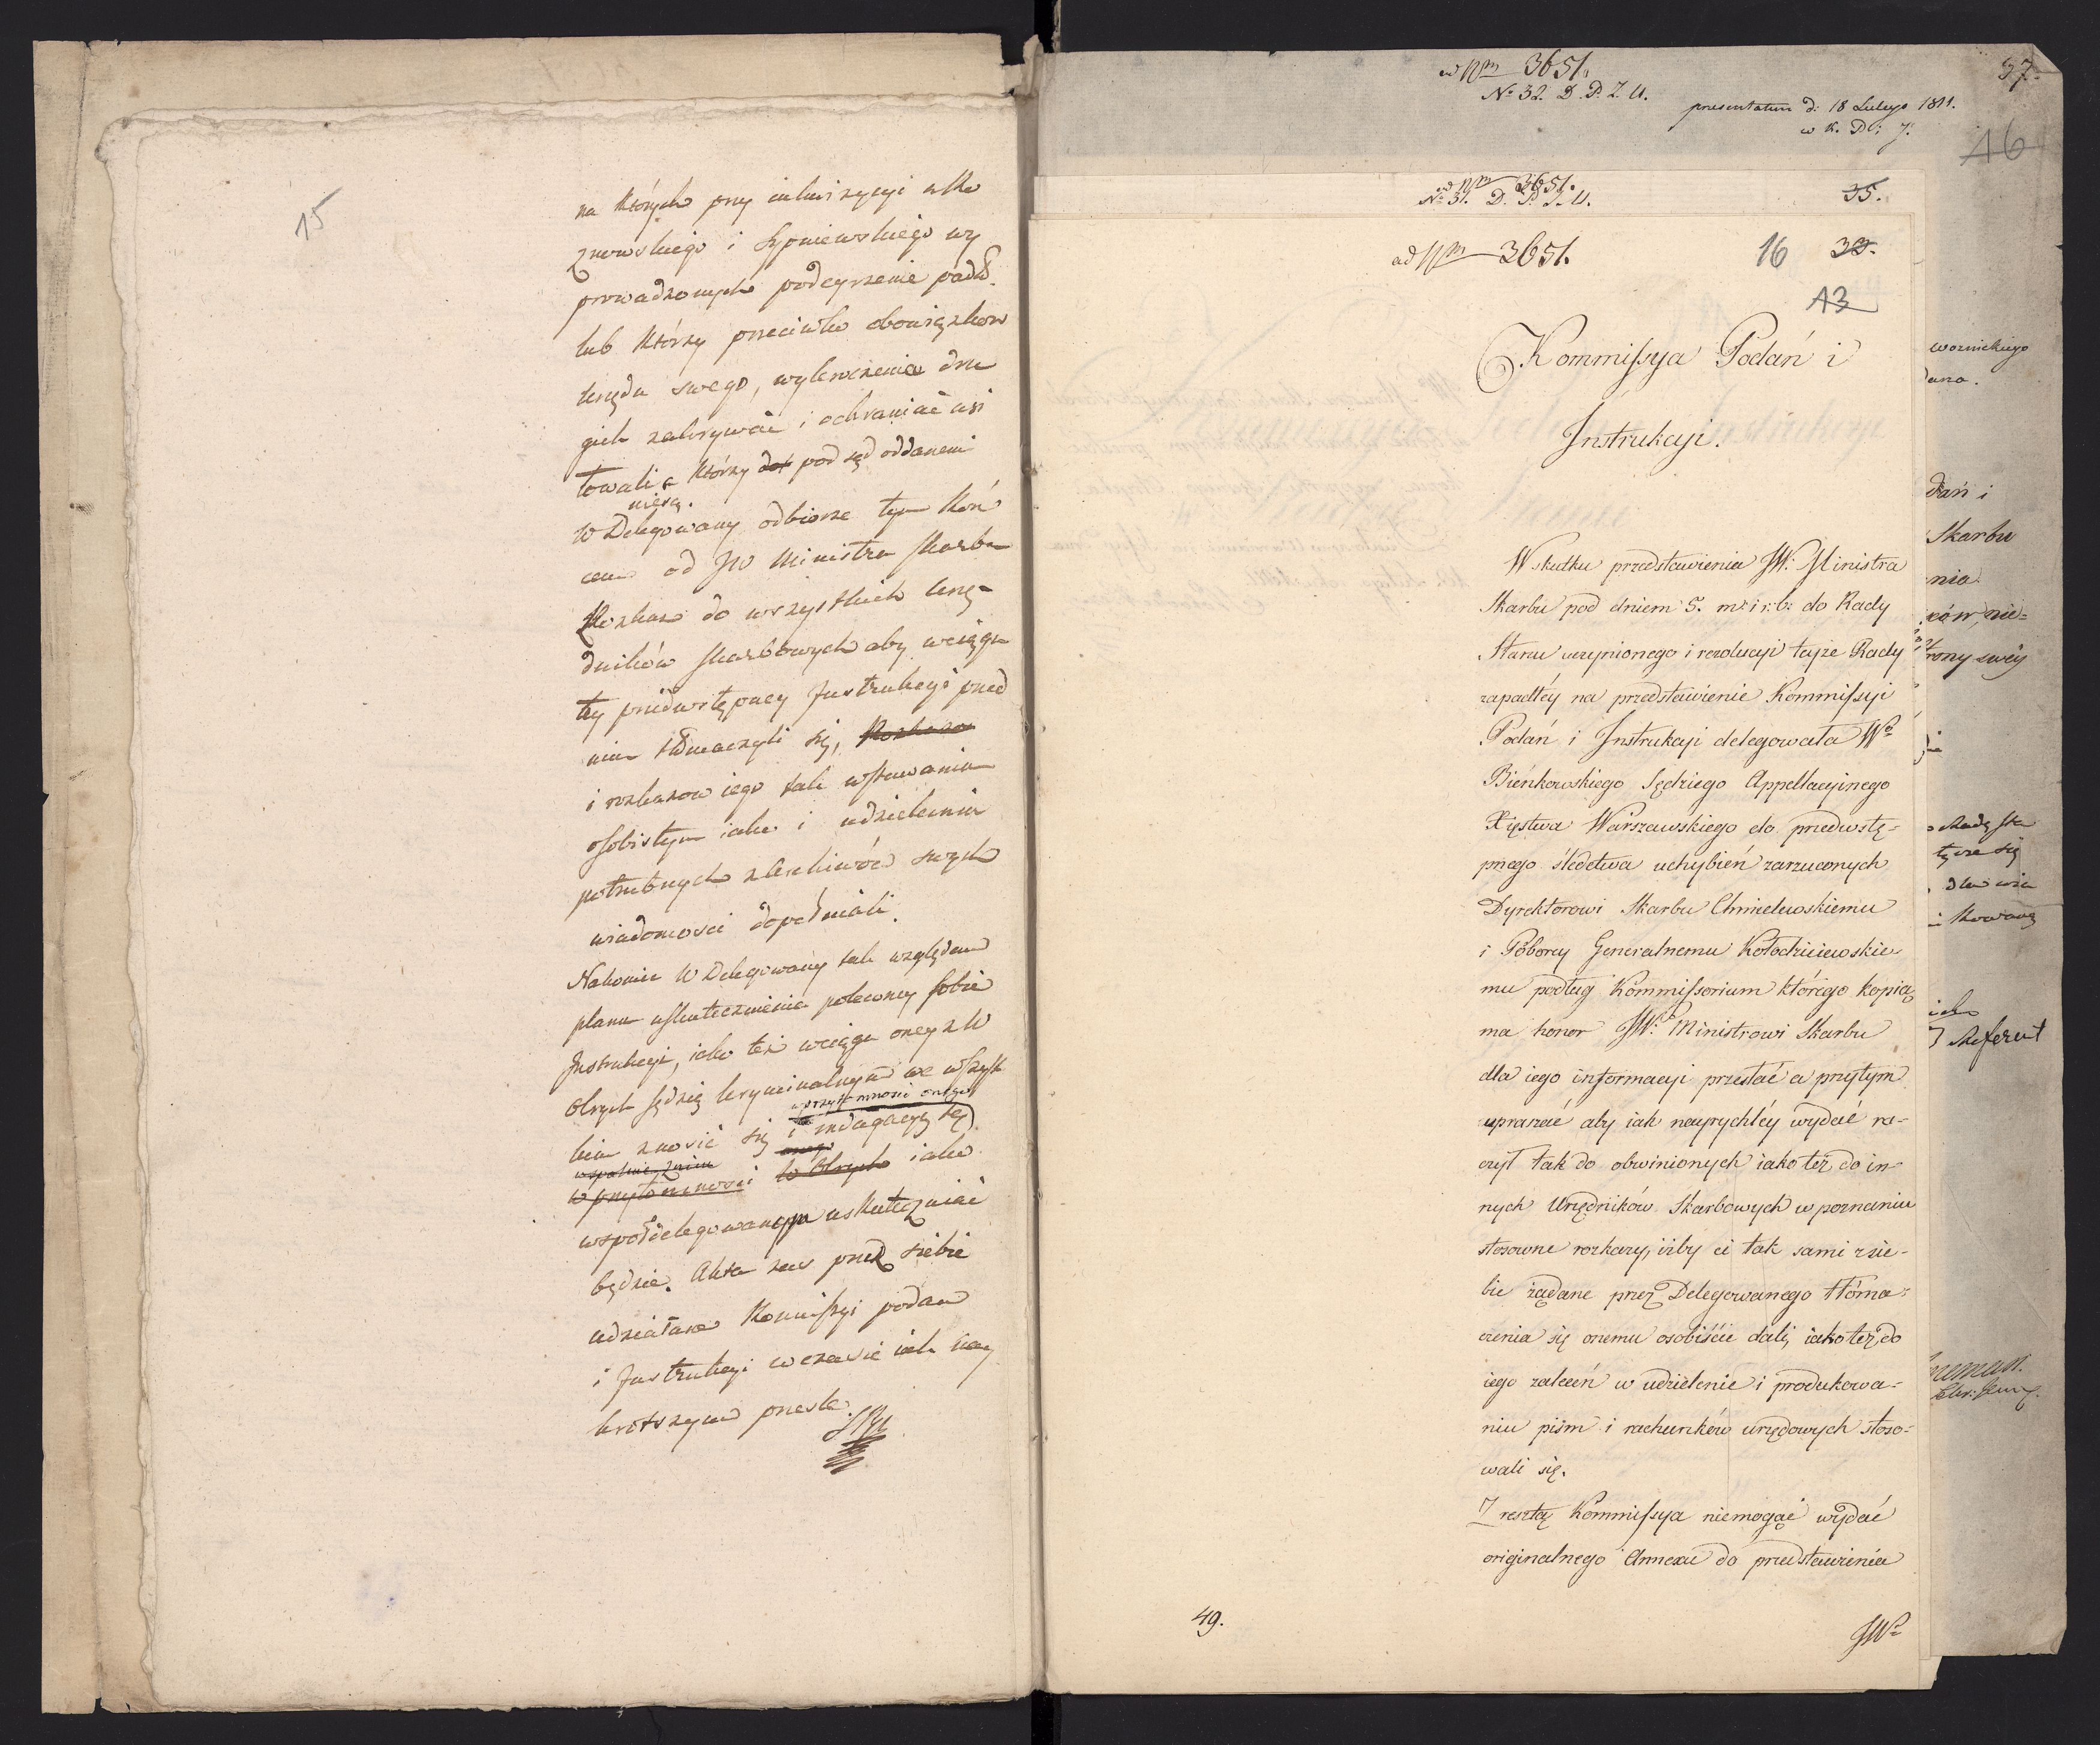 15
na których przy inkwizycyi
znowskiego i Sypniewskiego wy
prowadzonych podeyrzenie padło
lub którzy przeciwko obowiązkow
urzędu swego, wykroczenia dru
gich zakrywać i ochraniać usi
łowali, którzy pod sąd oddanemi
niesą.
W Delegowany odbierze tym koń
cem od JW Ministra Skarbu
Rozkaz do wszystkich Urzę-
dników skarbowych aby wciągu
tey przedwstępney Instrukcyi przed
nim tłomaczyli się, Rozkazow
i rozkazow iego tak wstawaniu
osobistym iako i udzieleniu
potrzebnych z Archiwów swych
wiadomosci dopełniali.
Nakoniec W Delegowany tak względem
planu uskutecznienia poleconey sobie
Instrukcyi, iako też wciągu oney z W
Olrych Sędzią kryminalnym we wszyst
w przytomnosci onego
kim znosić się i indagacyą tę
wspolnie z nim
w przytomnosci W Olrych iako
wspołdelegowanym uskuteczniać
będzie. Akta zas przez siebie
udziałane Kommissyi podan
i Instrukcyi w czasie iak nay
krotszym prześle.
ad Nrm 3651.
No 32. D. P. Z. U.
presentatum d: 18 Lutego 1811.
37.
16
ad Nrm 3651.
No 31. D. P. Z. U.
35.
ad Nrm 3651.
16 33.
13
Kommissya Podań i
Instrukcyi.
W skutku przedstawienia JW: Ministra
Skarbu pod dniem 5. m: i r: b: do Rady
Stanu uczynionego i rezolucyi tayże Rady
zapadłéy na przedstawienie Kommissyi
Podań i Instrukcyi delegowała Wo
Bieńkowskiego Sędziego Appellacyinego
Xięstwa Warszawskiego do przedwstę-
pnego śledztwa uchybień zarzuconych
Dyrektorowi Skarbu Chmielewskiemu
i Poborcy Generalnemu Kołodzieiewskie-
mu podług Kommissorium którego kopią
ma honor JW: Ministrowi Skarbu
dla iego informacyi przesłać a przytym
upraszać aby iak nayrychléy wydać ra-
czył tak do obwinionych iako też do in-
nych Urzędników Skarbowych w poznaniu
stosowne rozkazy, iżby ci tak sami z sie-
bie żądane przez Delegowanego tłóma-
czenia się onemu osobiście dali, iako też do
iego zaleceń w udzielenie i produkowa-
niu pism i rachunków urzędowych stoso-
wali się.
Zresztą Kommissya niemogąc wydać
originalnego Annexu do przedstawienia
JWo
49.
woznickiego
dana.
dań i
Skarbu
nia
ków, nie-
trony swéy
tycze się
Referent